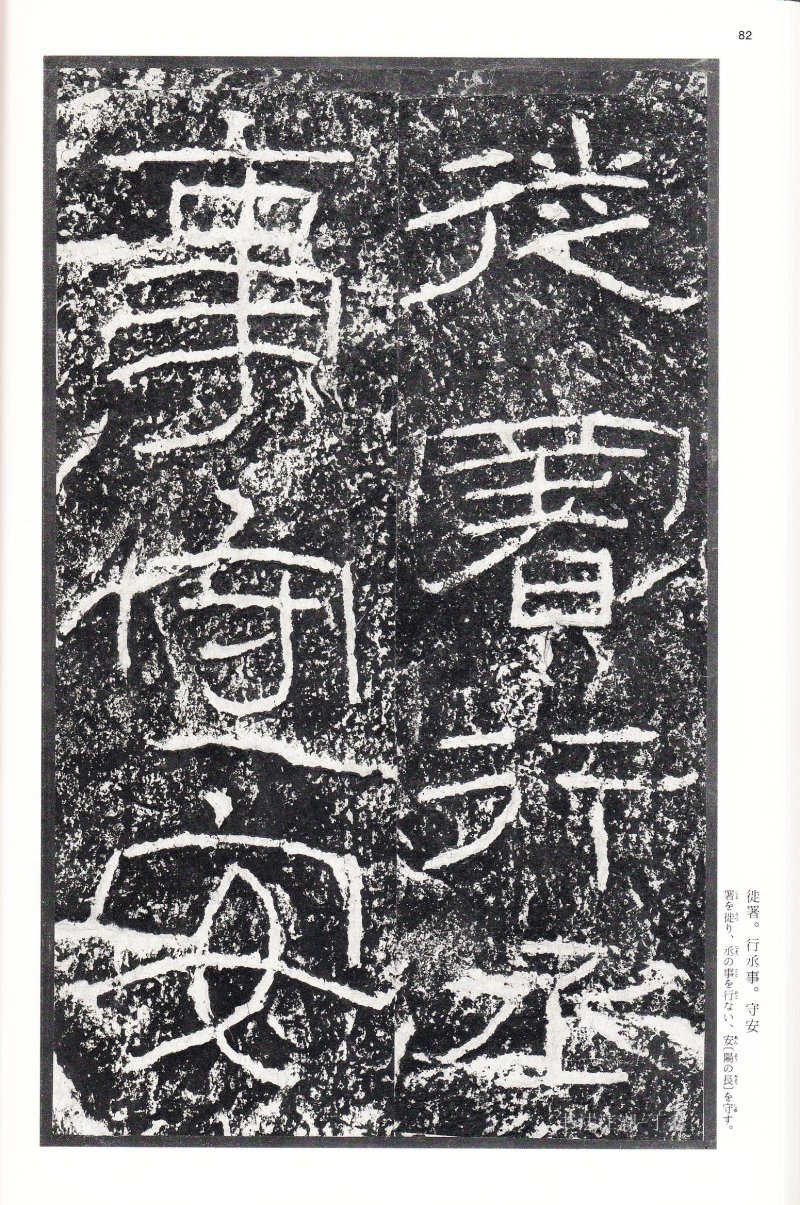 82
徙署行丞
事守安
徙署。行丞事。守安
署を徙り、丞の事を行ない、安〔陽の長〕を守す。